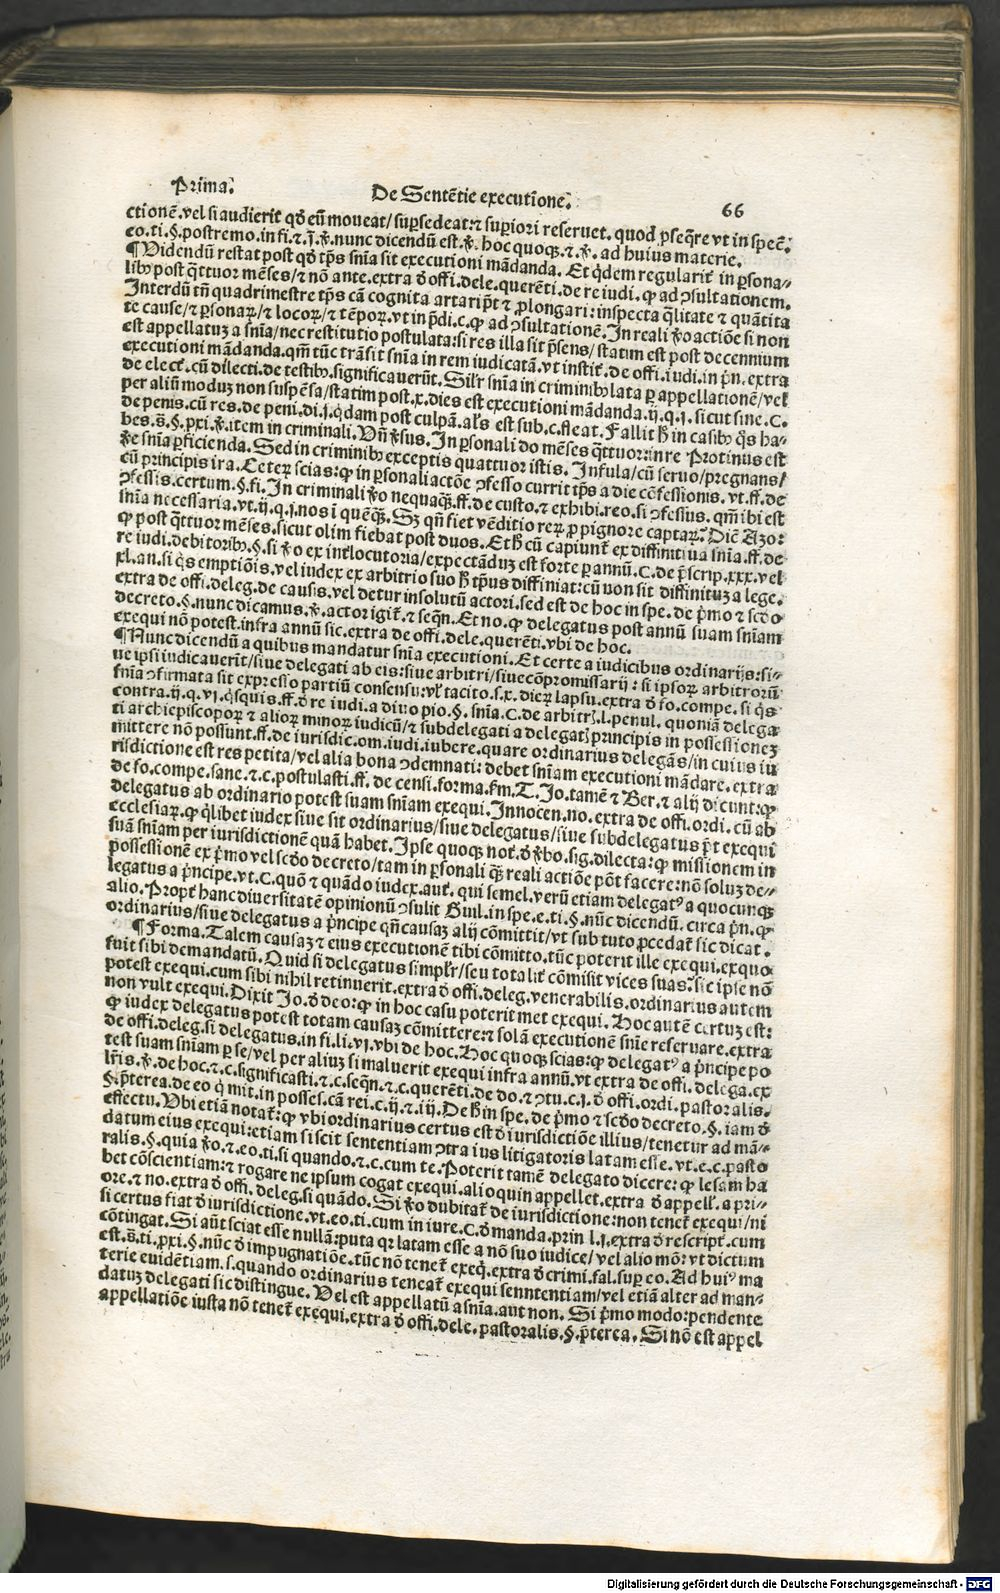 Prima. De Sentētie executione. 66
ctionē. vel si audierit qđ eū moueat/ supersedeat: ⁊ superiori reseruet. quod ꝓseq̄re vt in speč.
eo. ti. §. postremo. in fi. ⁊. j. ꝟ. nunc dicendū est. ꝟ. hoc quoqꝫ. ⁊. ꝟ. ad huius materie.
¶ Uidendū restat post qđ tp̄s sn̄ia sit executioni mādanda. Et q̇dem regularit̄ in ꝑsona⸗
libꝰ post q̄ttuor mēses/ ⁊ nō ante. extra đ offi. dele. querēti. de re iudi. ꝙ ad ↄsultationem.
Interdū tn̄ quadrimestre tp̄s cā cognita artari p̄t ⁊ ꝓlongari: inspecta q̄litate ⁊ quātita
te cause/ ⁊ ꝑsonaꝝ/ ⁊ locoꝝ/ ⁊ tēpoꝝ. vt in p̄di. c. ꝙ ad ↄsultationē. In reali ꝟo actiōe si non
est appellatuꝫ a sn̄ia/ nec restitutio postulata: si res illa sit p̄sens/ statim est post decennium
executioni mādanda. qm̄ tūc trāsit sn̄ia in rem iudicatā. vt instit̄. de offi. iudi. in pn̄. extra
de elect̄. cū dilecti. de testibꝰ. significauerūt. Silr̄ sn̄ia in criminibꝰ lata ꝑ appellationē/ vel
per aliū moduꝫ non suspēsa/ statim post. x. dies est executioni mādanda. ij. q. j. sicut sine. C.
de penis. cū res. de peni. di. j. q̇dam post culpā. al̄s est sub. c. fleat. Fallit h̄ in casibꝰ q̇s ha⸗
bes. s̄. §. ꝓxi. ꝟ. item in criminali. Vn̄ ꝟsus. In ꝑsonali do mēses q̄ttuor: in re Protinus est
ꝟe sn̄ia ꝑficienda. Sed in criminibꝰ exceptis quattuor istis. Insula/ cū seruo/ pregnans/
cū principis ira. Ceteꝝ scias: ꝙ in ꝑsonali actōe ↄfesso currit tp̄s a die cōfessionis. vt. ff. de
ↄfessis. certum. §. fi. In criminali ꝟo nequaqꝫ. ff. de custo. ⁊ exhibi. reo. si ↄfessus. qm̄ ibi est
sn̄ia necessaria. vt. ij. q. j. nos ī quēq̄ꝫ. Sꝫ qn̄ fiet vēditio reꝝ ꝓ pignore captaꝝ? Diē Azo:
ꝙ post q̄ttuor mēses. sicut olim fiebat post duos. Et h̄ cū capiunt̄ ex diffinitiua sn̄ia. ff. de
re iudi. debitoribꝰ. §. si ꝟo ex int̄locutoria/ expectāduꝫ est forte ꝑ annū. C. de p̄scrip. xxx. vel
xl. an. si q̇s emptiōis. vel iudex ex arbitrio suo h̄ tp̄us diffiniat: cū non sit diffinituꝫ a lege.
extra de offi. deleg. de causis. vel detur insolutū actori. sed est de hoc in spe. de p̄mo ⁊ sc̄do
decreto. §. nunc dicamus. ꝟ. actor igit̄. ⁊ seqn̄. Et no. ꝙ delegatus post annū suam sn̄iam
exequi nō potest. infra annū sic. extra de offi. dele. querēti. vbi de hoc.
¶ Nunc dicendū a quibus mandatur sn̄ia executioni. Et certe a iudicibus ordinarijs: si⸗
ue ipsi iudicauerīt/ siue delegati ab eis: siue arbitri/ siue cōpromissarij: si ipsoꝝ arbitrorū
sn̄ia ↄfirmata sit expresso partiū consensu: vl̄ tacito. s. x. dieꝝ lapsu. extra đ fo. compe. si q̇s
contra. ij. q. vj. q̇squis. ff. đ re iudi. a diuo pio. §. sn̄ia. C. de arbitr̄. l. penul. quoniā delega
ti archiepiscopoꝝ ⁊ alioꝝ minoꝝ iudicū/ ⁊ subdelegati a delegatꝭ principis in possessionez
mittere nō possunt. ff. de iurisdic. om. iudi. iubere. quare ordinarius delegās/ in cuius iu
risdictione est res petita/ vel alia bona ↄdemnati: debet sn̄iam executioni mādare. extra
de fo. compe. sane. ⁊. c. postulasti. ff. de censi. forma. fm̄. T. Jo. tamē ⁊ Ber. ⁊ alij dicunt: ꝙ
delegatus ab ordinario potest suam sn̄iam exequi. Innocen. no. extra de offi. ordi. cū ab
ecclesiaꝝ. ꝙ q̇libet iudex siue sit ordinarius/ siue delegatus/ siue subdelegatus p̄t exequi
suā sn̄iam per iurisdictionē quā habet. Ipse quoqꝫ not̄. đ ꝟbo. sig. dilecta: ꝙ missionem in
possessionē ex p̄mo vel sc̄do decreto/ tam in ꝑsonali qꝫ reali actiōe pōt facere: nō soluꝫ de⸗
legatus a pn̄cipe. vt. C. quō ⁊ quādo iudex. aut̄. qui semel. verū etiam delegatꝰ a quocunqꝫ
alio. Propt̄ hanc diuersitatē opinionū ↄsulit Guil. in spe. e. ti. §. nūc dicendū. circa pn̄. ꝙ
ordinarius/ siue delegatus a pn̄cipe qn̄ causaꝫ alij cōmittit/ vt sub tuto ꝓcedat̄ sic dicat.
¶ Forma. Talem causaꝫ ⁊ eius executionē tibi cōmitto. tūc poterit ille exequi. ex quo
fuit sibi demandatū. Quid si delegatus simpl̄r/ seu totalit̄ cōmisit vices suas? sic ipse nō
potest exequi. cum sibi nihil retinuerit. extra đ offi. deleg. venerabilis. ordinarius autem
non vult exequi. Dixit Jo. đ deo: ꝙ in hoc casu poterit met exequi. Hoc autē certuꝫ est:
ꝙ iudex delegatus potest totam causaꝫ cōmittere: ⁊ solā executionē sn̄ie reseruare. extra
de offi. deleg. si delegatus. in fi. li. vj. vbi de hoc. Hoc quoqꝫ scias: ꝙ delegatꝰ a pn̄cipe po
test suam sn̄iam ꝑ se/ vel per aliuꝫ si maluerit exequi infra annū. vt extra de offi. delega. ex
lr̄is. ꝟ. de hoc. ⁊. c. significasti. ⁊. c. seqn̄. ⁊. c. querēti. de do. ⁊ ↄtu. c. j. đ offi. ordi. pastoralis.
§. p̄terea. de eo q̇ mit. in posses. cā rei. c. ij. ⁊. iij. De h̄ in spe. de p̄mo ⁊ sc̄do decreto. §. iam đ
effectu. Vbi etiā notat̄: ꝙ vbi ordinarius certus est đ iurisdictiōe illius/ tenetur ad mā⸗
datum eius exequi: etiam si scit sententiam ↄtra ius litigatoris latam esse. vt. e. c. pasto
ralis. §. quia ꝟo. ⁊. eo. ti. si quando. ⁊. c. cum te. Poterit tamē delegato dicere: ꝙ lesam ha
bet cōscientiam: ⁊ rogare ne ipsum cogat exequi. alioquin appellet. extra đ appell̄. a pri⸗
ore. ⁊ no. extra đ offi. deleg. si quādo. Si ꝟo dubitat̄ de iurisdictione: non tenet̄ exequi/ ni
si certus fiat đ iurisdictione. vt. eo. ti. cum in iure. C. đ manda. prin. l. j. extra đ rescript̄. cum
cōtingat. Si aūt sciat esse nullā: puta qꝛ latam esse a nō suo iudice/ vel alio mō: vt dictum
est. s̄. ti. ꝓxi. §. nūc đ impugnatiōe. tūc nō tenet̄ exeq̇. extra đ crimi. fal. suꝑ eo. Ad huiꝰ ma
terie euidētiam. s. quando ordinarius teneat̄ exequi senntentiam/ vel etiā alter ad man⸗
datuꝫ delegati sic distingue. Vel est appellatū a sn̄ia. aut non. Si p̄mo modo: pendente
appellatiōe iusta nō tenet̄ exequi. extra đ offi. dele. pastoralis. §. p̄terea. Si nō est appel
Digitalisierung gefördert durch die Deutsche Forschungsgemeinschaft - DFG